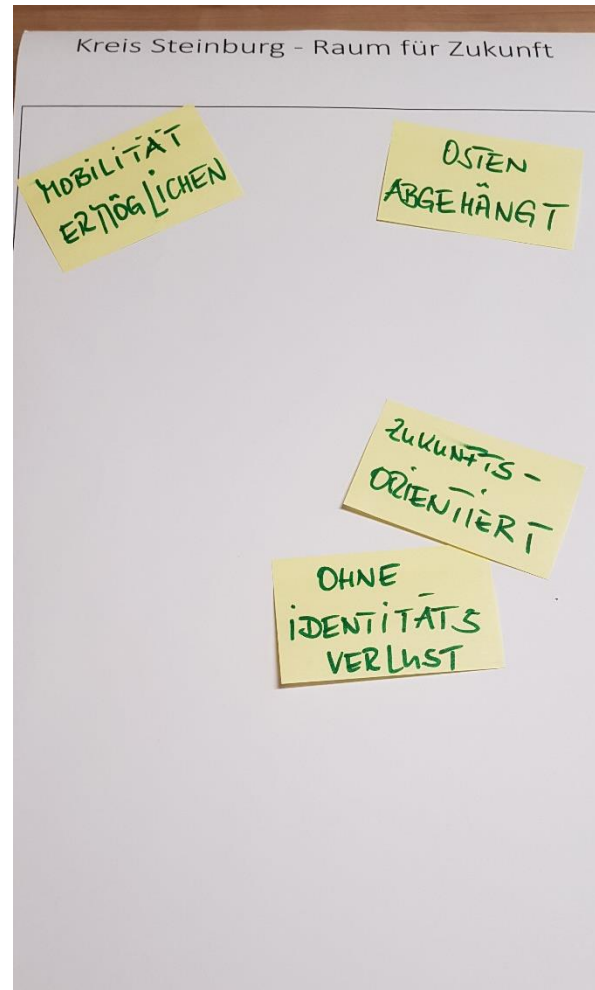 Kreis Steinburg - Raum für Zukunft
MOBILITÄT
ERMÖGLICHEN
OSTEN
ABGEHÄNGT
ZUKUNFTS-
ORIENTIERT
OHNE
IDENTITÄTS
VERLUST